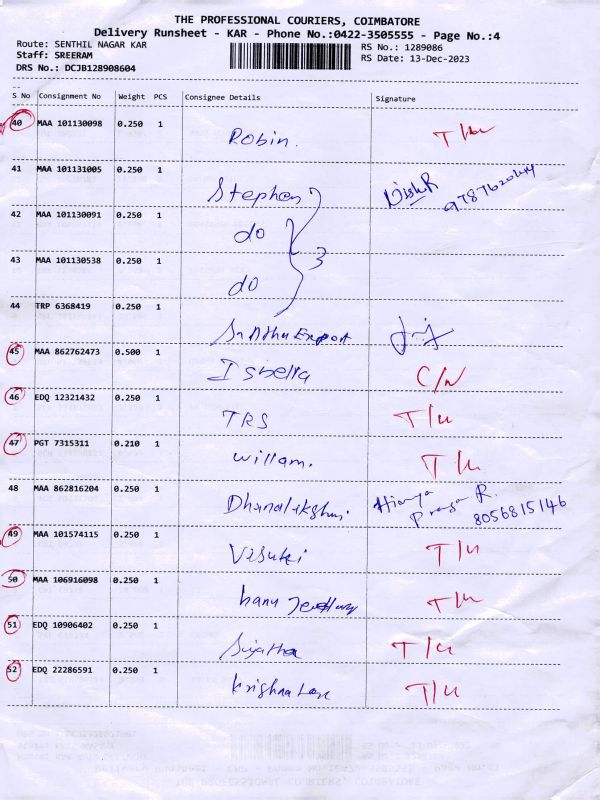 THE PROFESSIONAL COURIERS, COIMBATORE
Delivery Runsheet - KAR - Phone No.:0422-3505555 - Page No.:4
Route: SENTHIL NAGAR KAR
RS No.: 1289086
Staff: SREERAM
RS Date: 13-Dec-2023
DRS No.: DCJB128908604
S No Consignment No Weight PCS Consignee Details Signature
40 MAA 101130098 0.250 1 Robin. T/
41 MAA 101131005 0.250 1 Stephen
42 MAA 101130091 0.250 1 do
43 MAA 101130538 0.250 1 do 3
44 TRP 6368419 0.250 1 Export
45 MAA 862762473 0.500 1 Isbella C/N
46 EDQ 12321432 0.250 1 TRS T/u
47 PGT 7315311 0.210 1 Willam. T/u
48 MAA 862816204 0.250 1 R. 8056815146
49 MAA 101574115 0.250 1 T/u
50 MAA 106916098 0.250 1 T/u
51 EDQ 10906402 0.250 1 T/u
52 EDQ 22286591 0.250 1 Krishna T/u